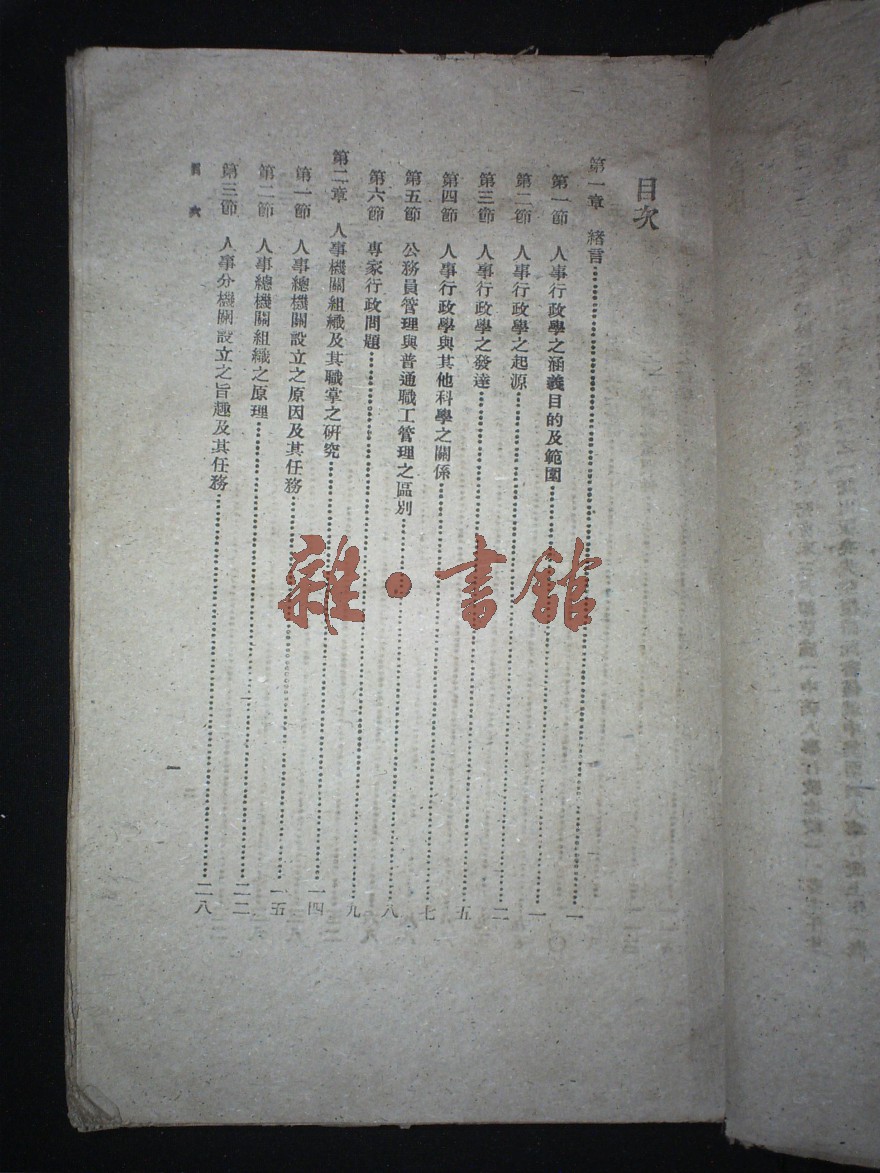 目次
第一章 緒言……一
第一節 人事行政學之涵義目的及範圍……一
第二節 人事行政學之起源……二
第三節 人事行政學之發達……五
第四節 人事行政學與其他科學之關係……七
第五節 公務員管理與普通職工管理之區別……八
第六節 專家行政問題……九
第二章 人事機關組織及其職掌之研究……一四
第一節 人事總機關設立之原因及其任務……一五
第二節 人事總機關組織之原理……二二
第三節 人事分機關設立之旨趣及其任務……二八
目次
一
雜·書館